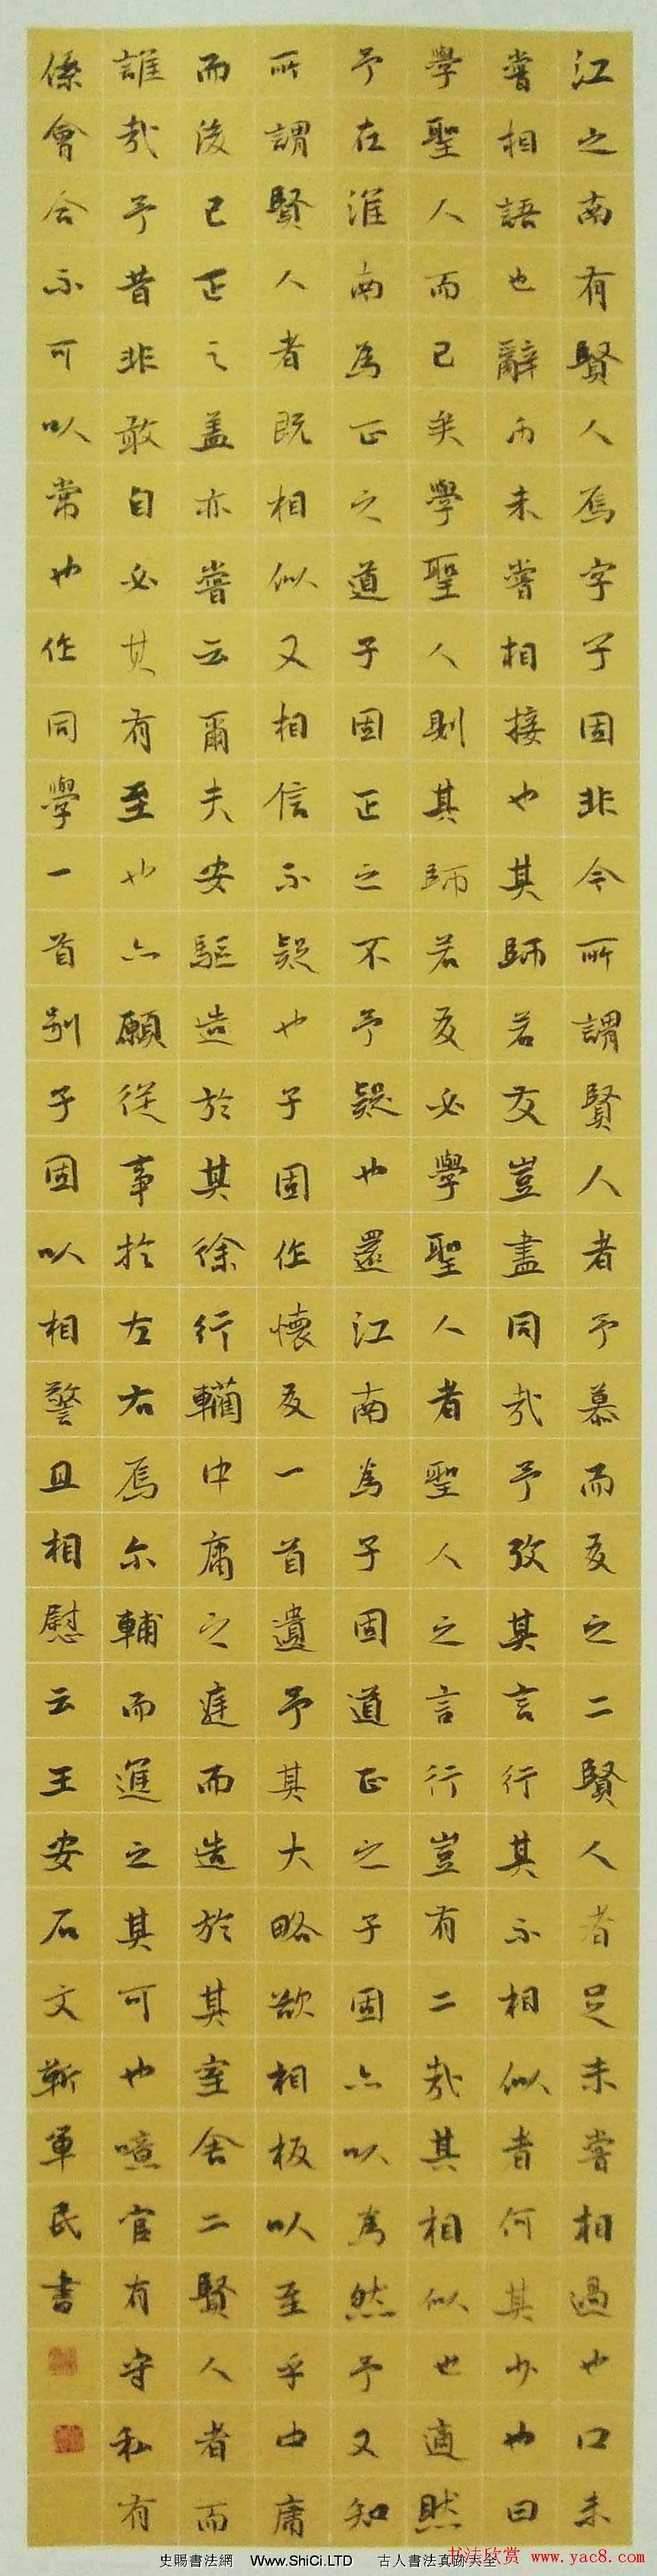 江之南有賢人焉字子固非今所謂賢人者予慕而友之二賢人者足未嘗相過也口未
嘗相語也辭币未嘗相接也其師若友豈盡同哉予攷其言行其不相似者何其少也曰
學聖人而已矣學聖人則其師若友必學聖人者聖人之言行豈有二哉其相似也適然
予在淮南為正之道子固正之不予疑也還江南為子固道正之子固亦以為然予又知
所謂賢人者既相似又相信不疑也子固作懷友一首遺予其大略欲相扳以至乎中庸
而後已正之蓋亦嘗云爾夫安驅造於其徐行轥中庸之庭而造於其室舍二賢人者而
誰哉予昔非敢自必其有至也亦願從事於左右焉尔輔而進之其可也噫官有守私有
係會合不可以常也作同學一首別子固以相警且相慰云王安石文靳軍民書
史賜書法網 Www.ShiCi.LTD 古人書法真跡大全
书法欣赏 www.yac8.com